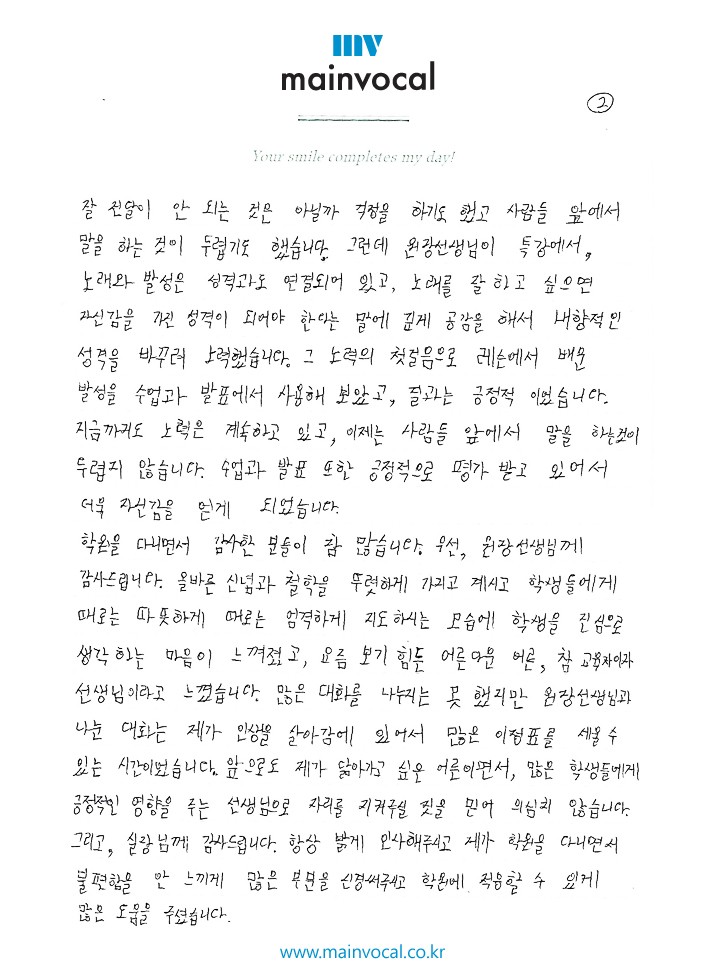 mv
mainvocal
2
Your smile completes my day!
잘 전달이 안 되는 것은 아닐까 걱정을 하기도 했고 사람들 앞에서
말을 하는 것이 두렵기도 했습니다. 그런데 원장선생님이 특강에서,
노래와 발성은 성격과도 연결되어 있고, 노래를 잘 하고 싶으면
자신감을 가진 성격이 되어야 한다는 말에 깊게 공감을 해서 내향적인
성격을 바꾸려 노력했습니다. 그 노력의 첫걸음으로 레슨에서 배운
발성을 수업과 발표에서 사용해 보았고, 결과는 긍정적 이었습니다.
지금까지도 노력은 계속하고 있고, 이제는 사람들 앞에서 말을 하는것이
두렵지 않습니다. 수업과 발표 또한 긍정적으로 평가 받고 있어서
더욱 자신감을 얻게 되었습니다.
학원을 다니면서 감사한 분들이 참 많습니다. 우선, 원장선생님께
감사드립니다. 올바른 신념과 철학을 뚜렷하게 가지고 계시고 학생들에게
때로는 따뜻하게 때로는 엄격하게 지도하시는 모습에 학생을 진심으로
생각하는 마음이 느껴졌고, 요즘 보기 힘든 어른다운 어른, 참 교육자이자
선생님이라고 느꼈습니다. 많은 대화를 나누지는 못 했지만 원장선생님과
나눈 대화는 제가 인생을 살아감에 있어서 많은 이정표를 세울 수
있는 시간이었습니다. 앞으로도 제가 닮아가고 싶은 어른이면서, 많은 학생들에게
긍정적인 영향을 주는 선생님으로 자리를 지켜주실 것을 믿어 의심치 않습니다.
그리고, 실장님께 감사드립니다. 항상 밝게 인사해주시고 제가 학원을 다니면서
불편함을 안 느끼게 많은 부분을 신경써주시고 학원에 적응할 수 있게
많은 도움을 주셨습니다.
www.mainvocal.co.kr